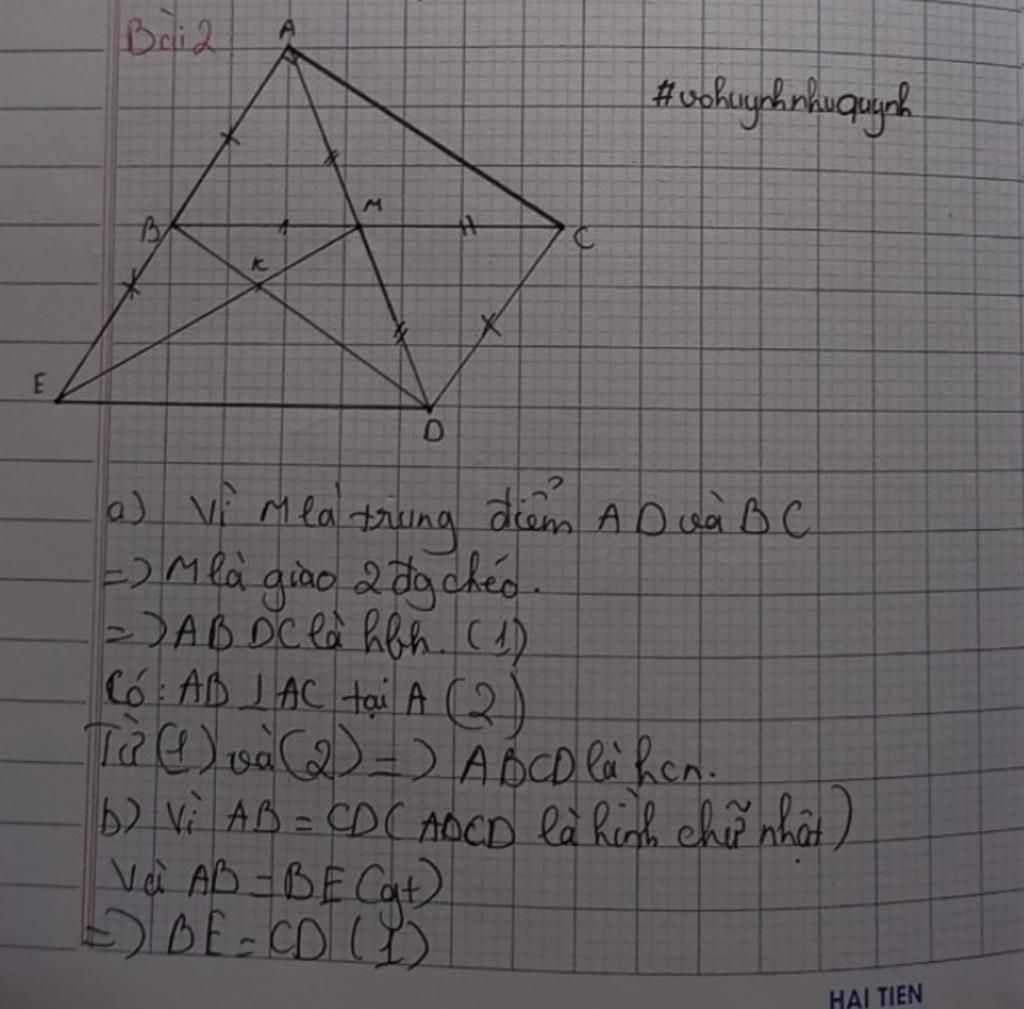 Bài 2
#vohuynhnhuquynh
A
B
M
C
K
E
D
a) Vì M là trung điểm AD và BC
=> M là giao 2 đg chéo.
=> ABDC là hbh. (1)
Có: AB ⊥ AC tại A (2)
Từ (1) và (2) => ABCD là hcn.
b) Vì AB = CD (ABCD là hình chữ nhật)
Và AB = BE (gt)
=> BE = CD (1)
HAI TIEN